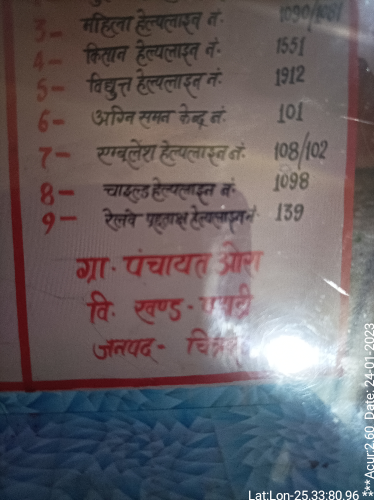 3- महिला हेल्पलाइन नं. 1090/1081
4- किसान हेल्पलाइन नं. 1551
5- विद्युत्त हेल्पलाइन नं. 1912
6- अग्नि समन केन्द्र नं. 101
7- एम्बूलेंश हेल्पलाइन नं. 108/102
8- चाइल्ड हेल्पलाइन नं. 1098
9- रेलवे हेल्पलाइन नं. 139
ग्रा. पंचायत ओरा
वि. खण्ड-
जनपद-
Lat:Lon-25.33:80.96
***Acur:2.60 Date: 24-01-2023